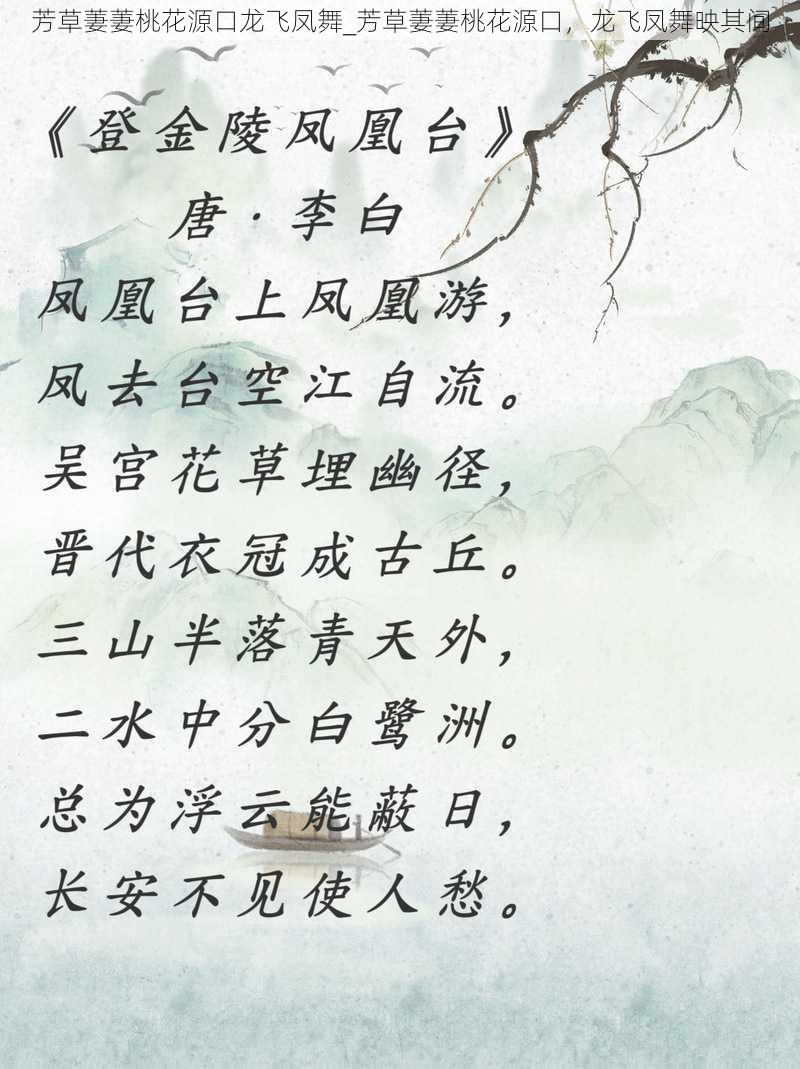 芳草萋萋桃花源口龙飞凤舞_芳草萋萋桃花源口，龙飞凤舞映其间
《登金陵凤凰台》
唐·李白
凤凰台上凤凰游，
凤去台空江自流。
吴宫花草埋幽径，
晋代衣冠成古丘。
三山半落青天外，
二水中分白鹭洲。
总为浮云能蔽日，
长安不见使人愁。